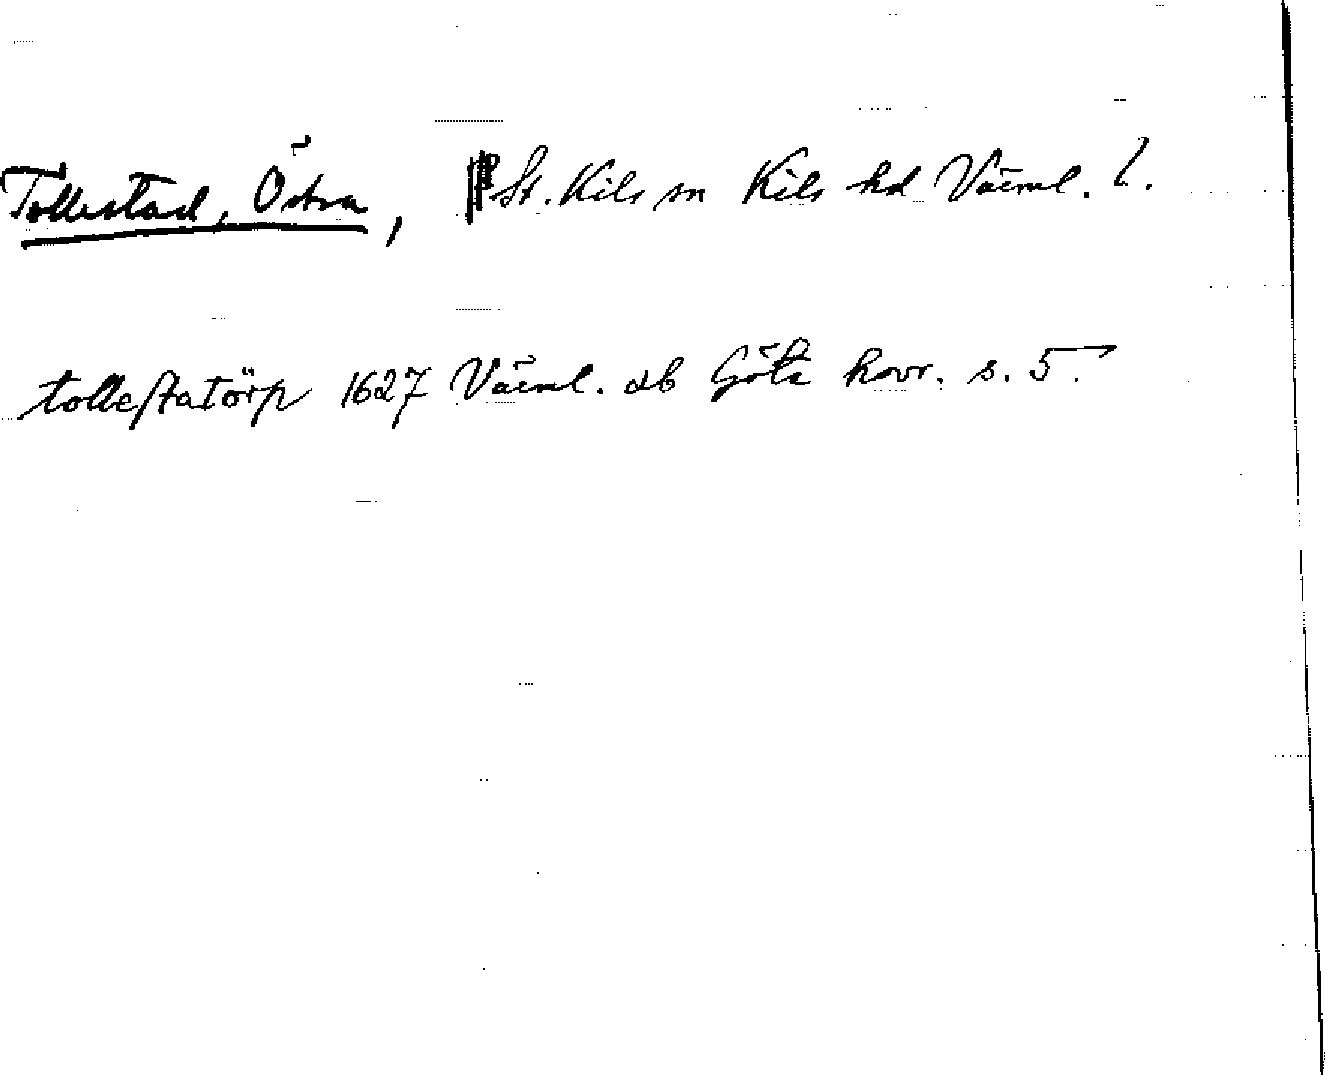 Tollestad, Östra, St. Kils sn Kils hd Värml. l.
tollestatörp 1627 Värml. ab Göta hovr. s. 5.